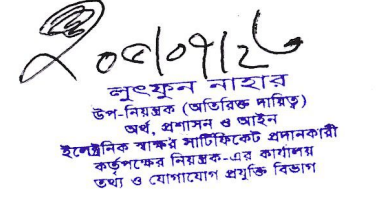 ২০৫/০৭/২৬
লুৎফুন নাহার
উপ-নিয়ন্ত্রক (অতিরিক্ত দায়িত্ব)
অর্থ, প্রশাসন ও আইন
ইলেক্ট্রনিক স্বাক্ষর সার্টিফিকেট প্রদানকারী
কর্তৃপক্ষের নিয়ন্ত্রক-এর কার্যালয়
তথ্য ও যোগাযোগ প্রযুক্তি বিভাগ